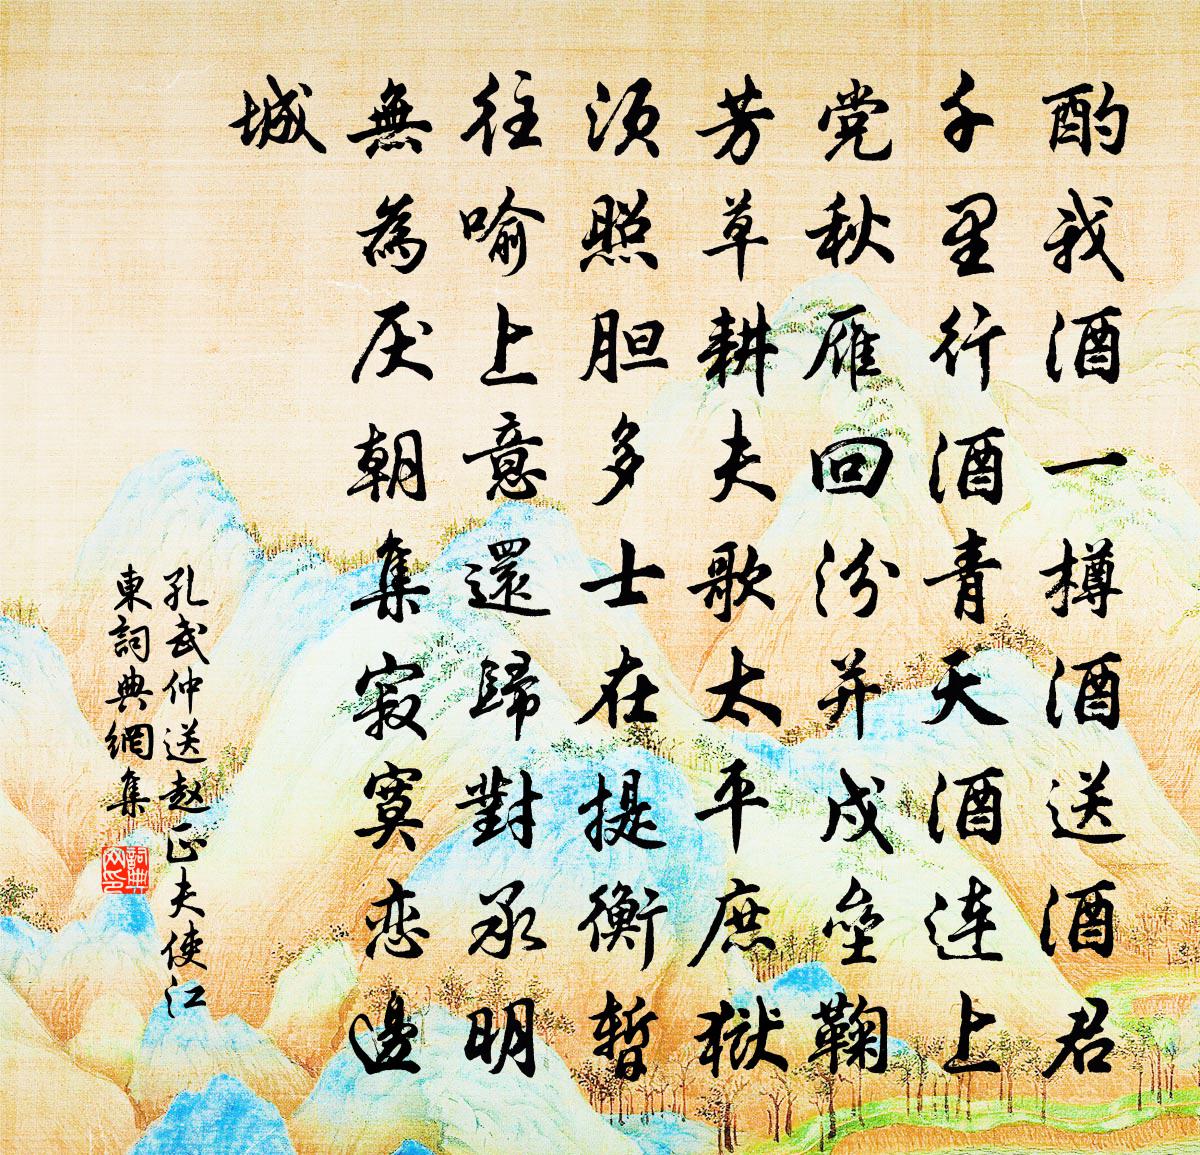 酌我酒一樽酒送酒君
千里行酒青天酒连上
党秋雁回汾并戍垒鞠
芳草耕夫歌太平庶狱
须照胆多士在提衡暂
往喻上意還歸對承明
無為厌朝集寂寞恋邊
城
孔武仲送赵正夫使江
東詞典網集
詞典
网印